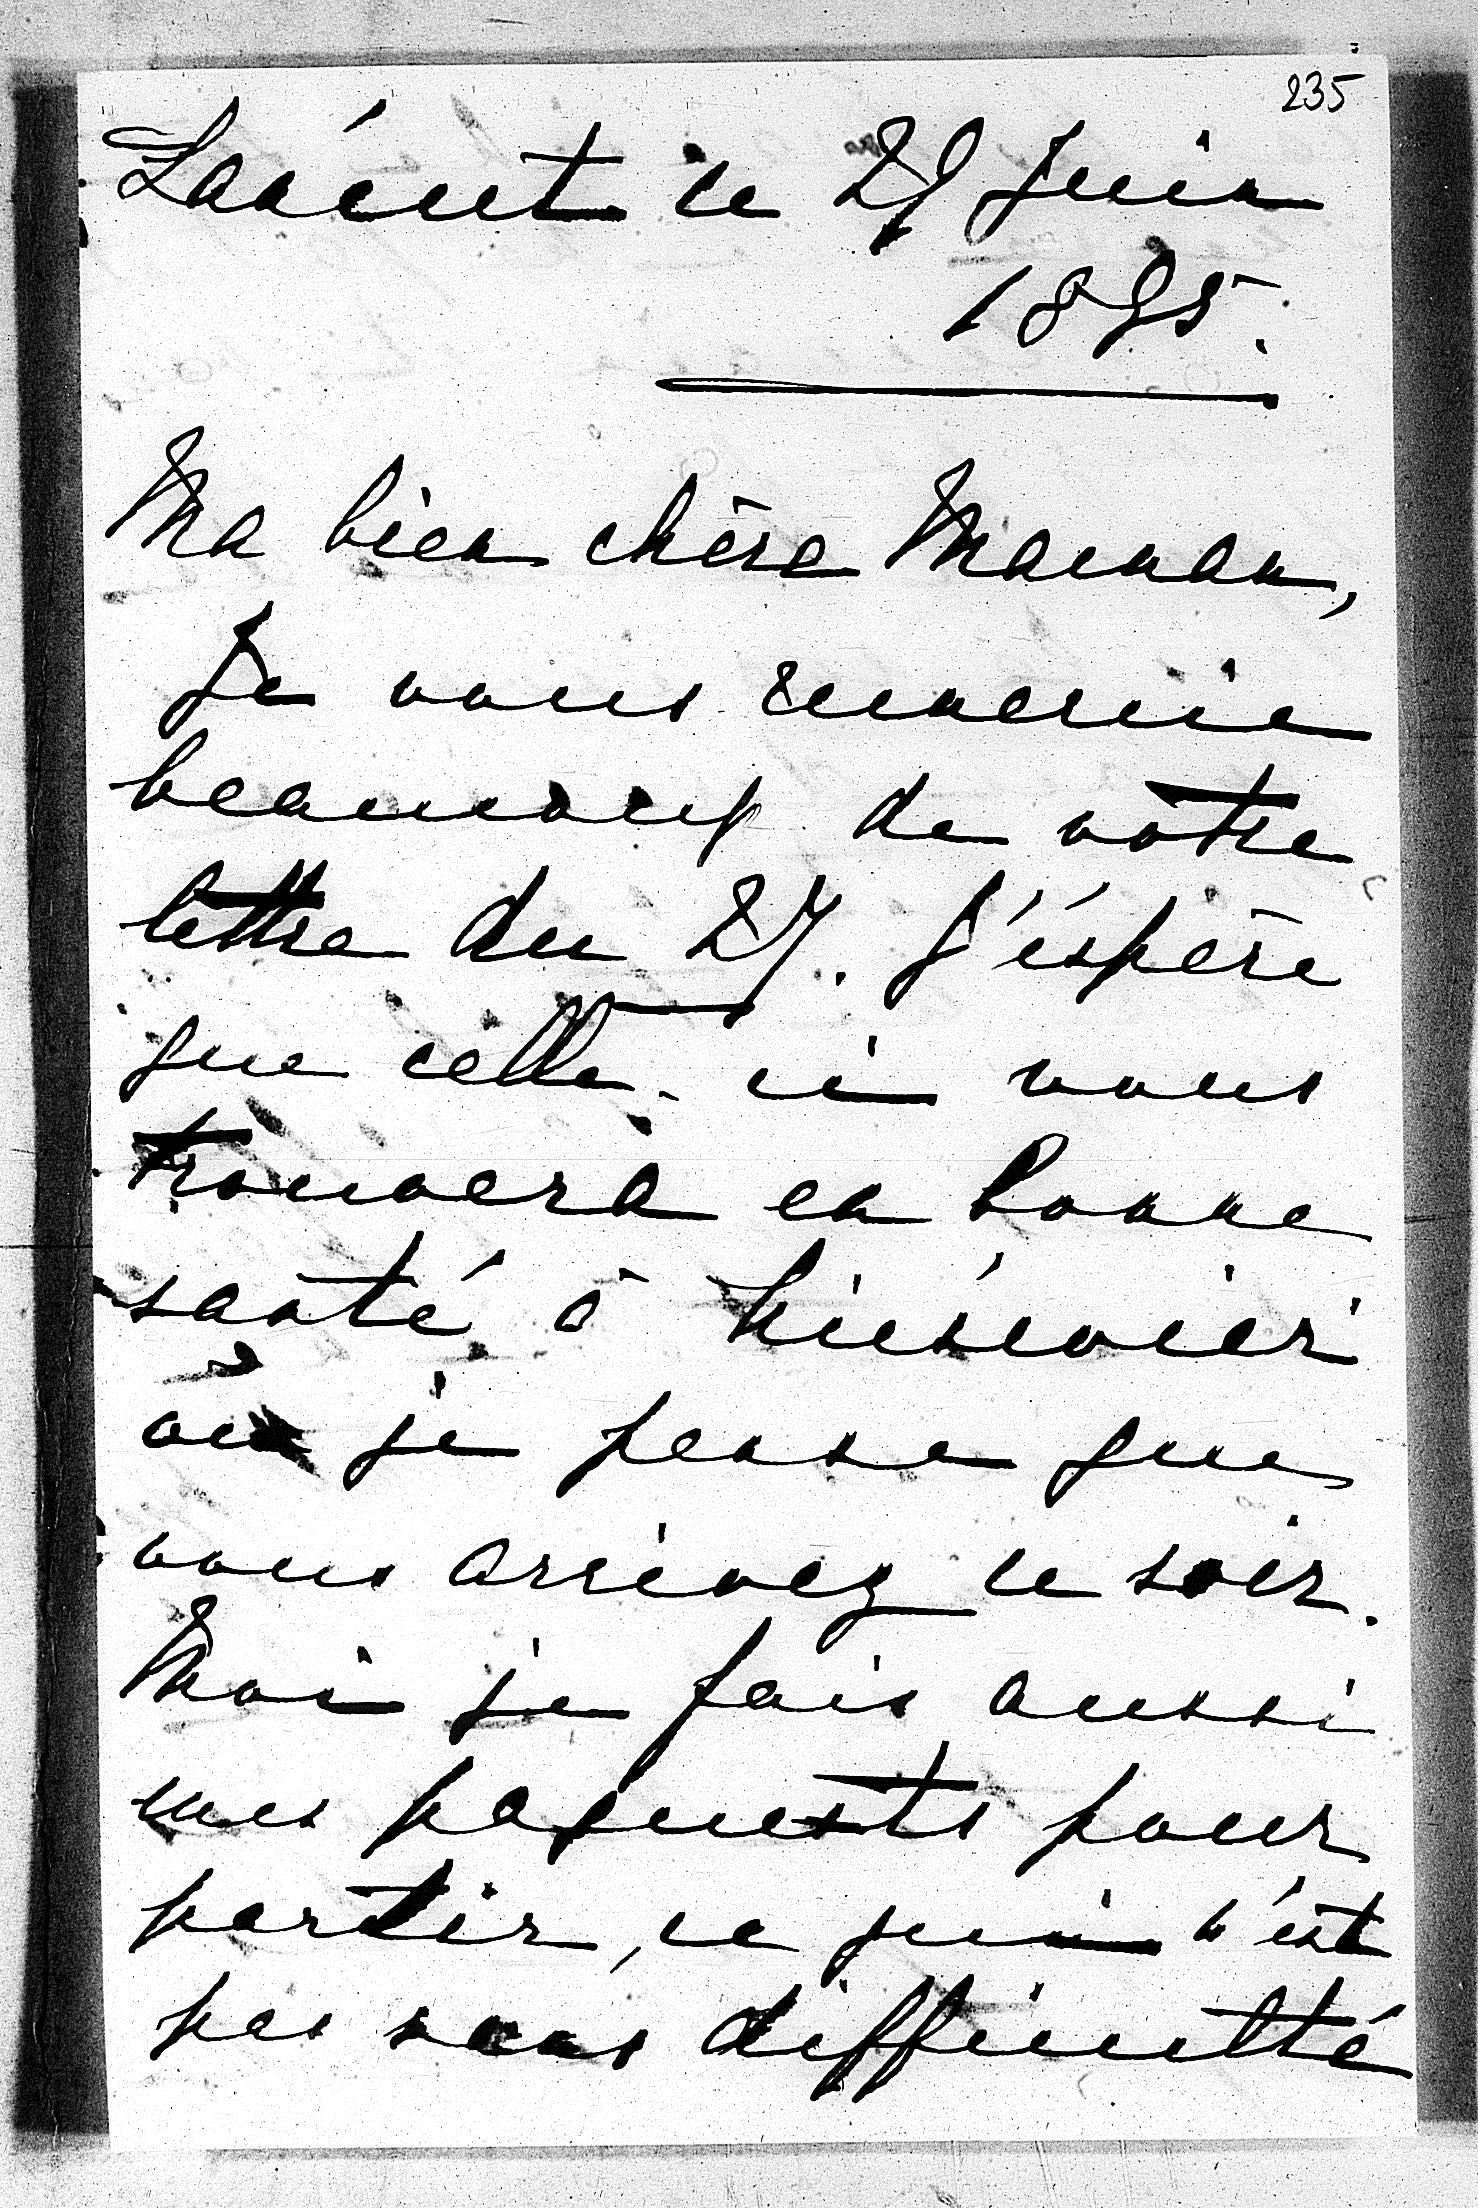 235
Laacut ce 29 Juin
1895.
Ma bien chère Maman,
Je vous remercie
beaucoup de votre
lettre du 27. J'éspère
que celle-ci vous
trouvera en bonne
santé à
où je pense que
vous arrivez ce soir.
Moi je fais aussi
mes paquests pour
partir, ce qui n'est
pas sans difficultté